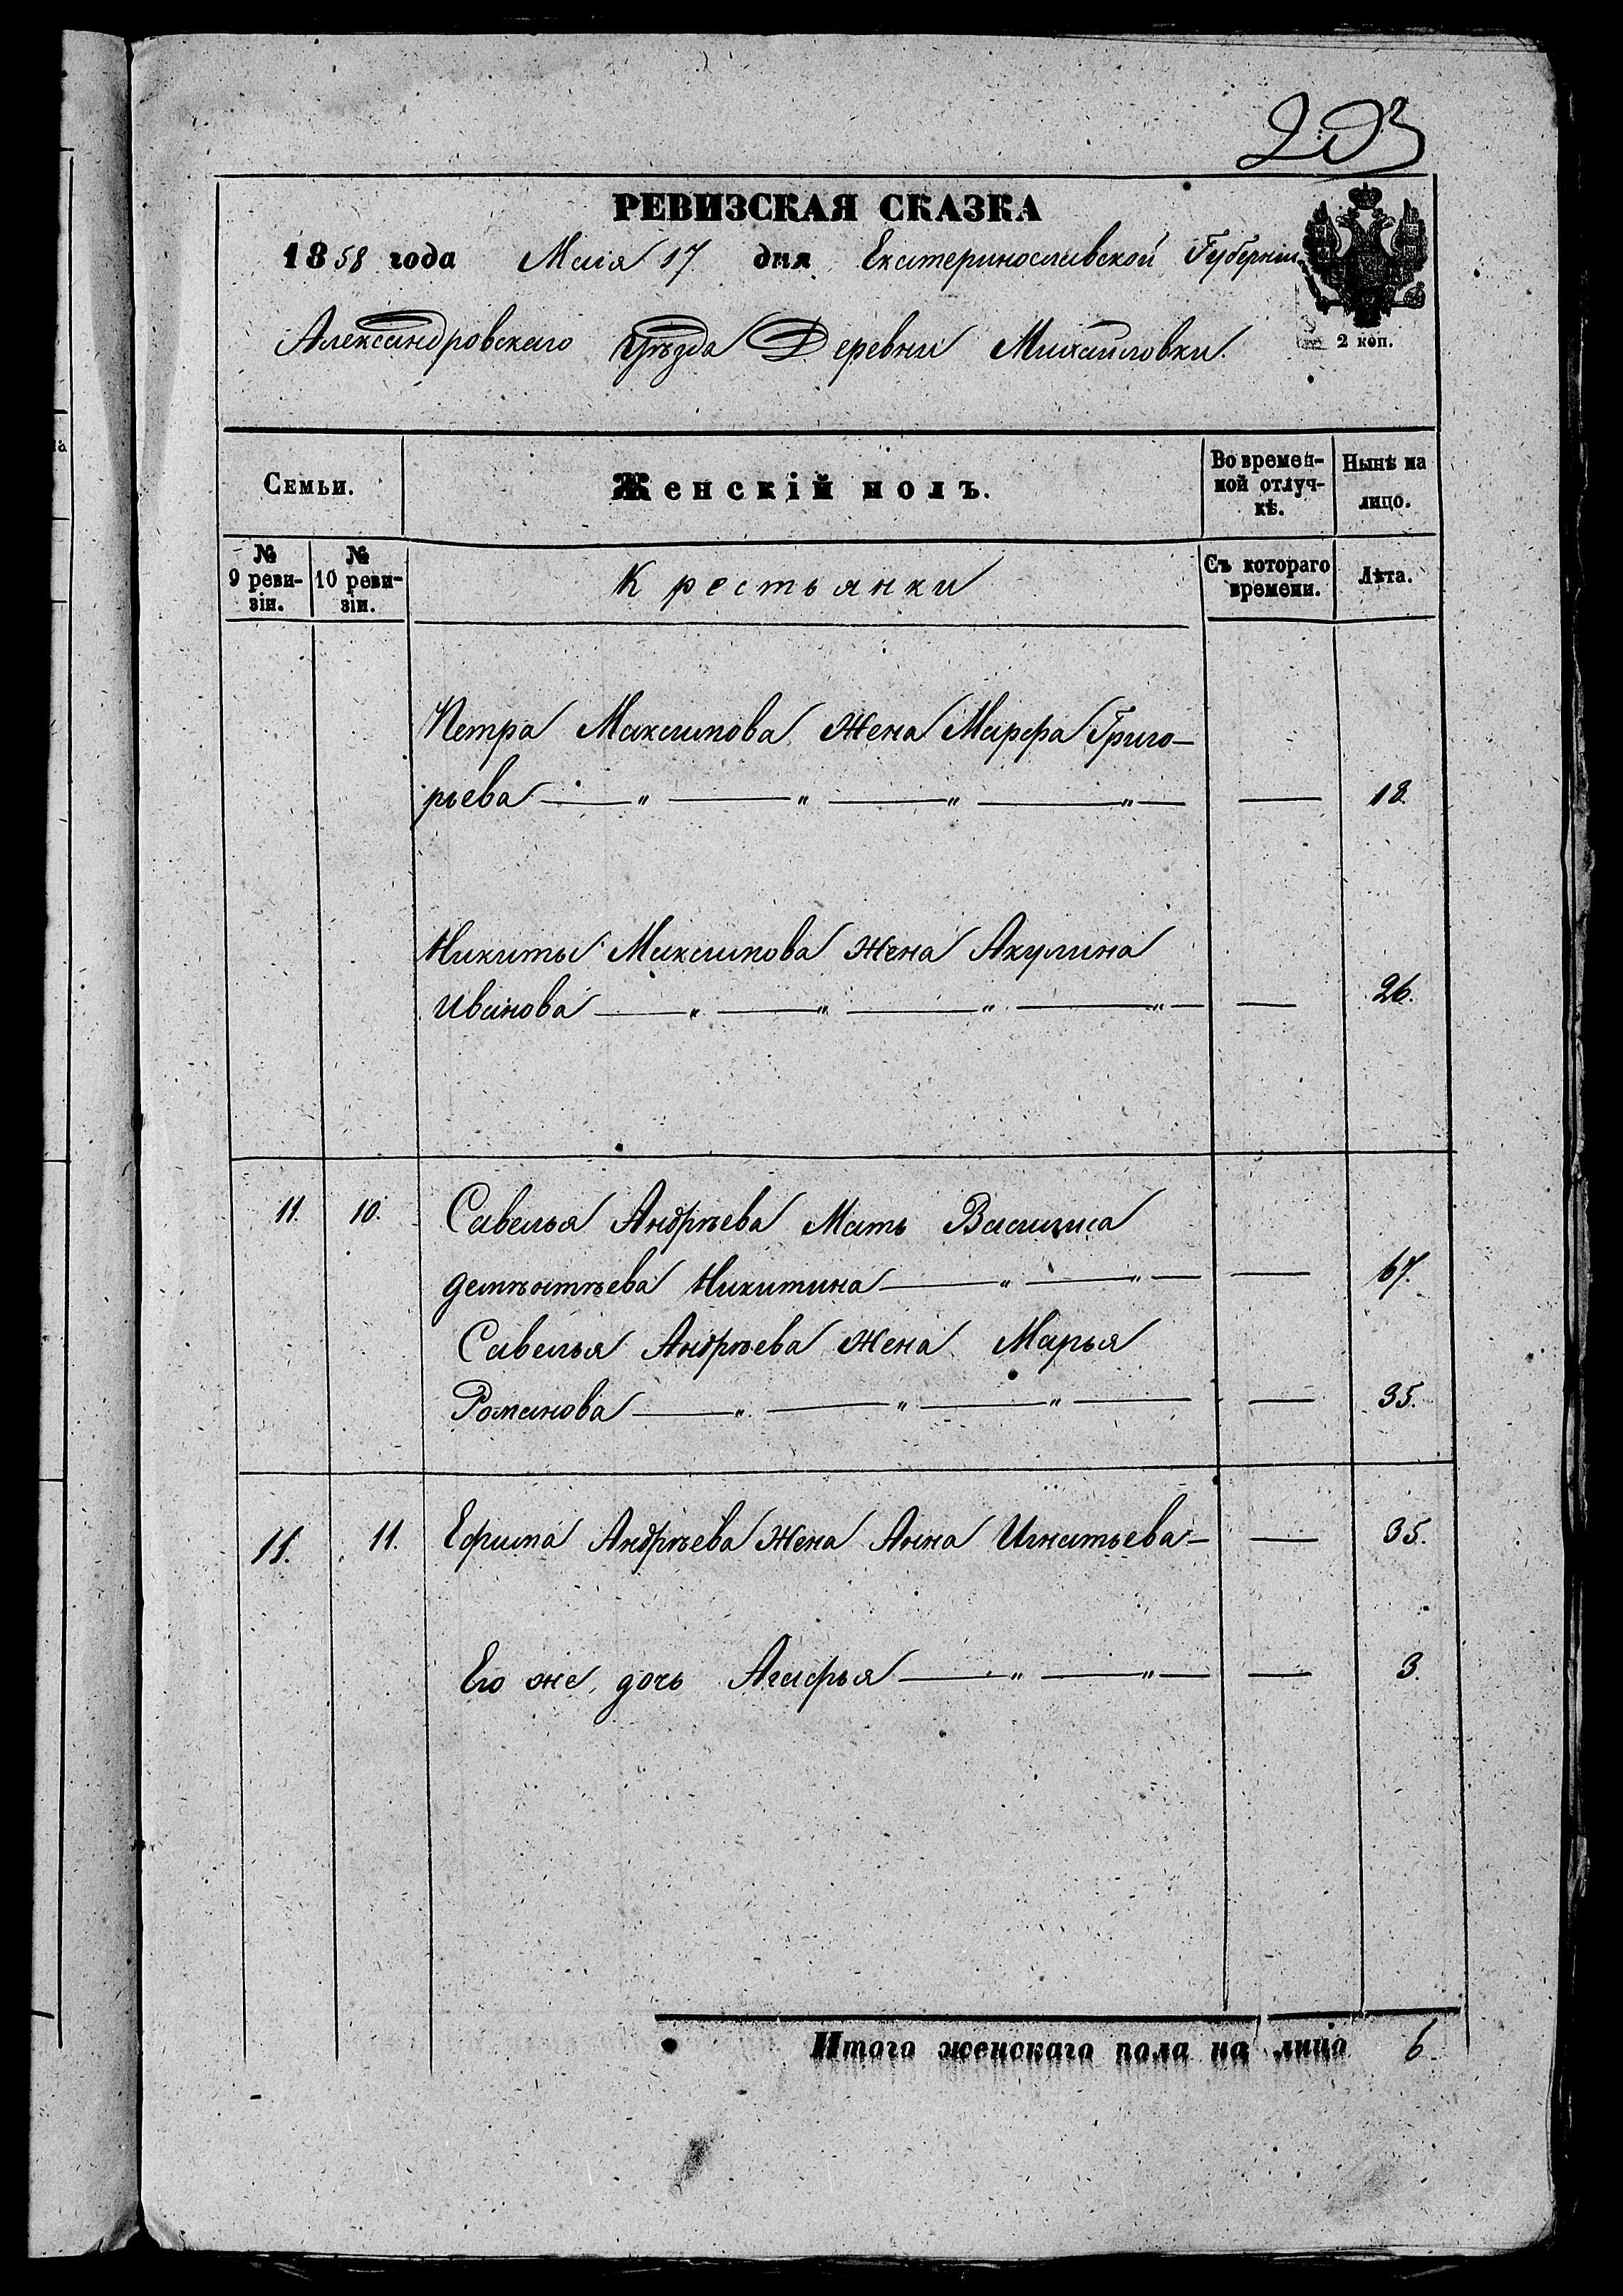 203
РЕВИЗСКАЯ СКАЗКА
1858 года Маія 17 дня Екатеринославской Губерніи
Александровскаго Уѣзда Деревни Михайловки.
2 коп.
Семьи.
Женскій полъ.
Во времен-
ной отлуч-
кѣ.
Нынѣ на
лицо.
№
9 реви-
зіи.
№
10 реви-
зіи.
Крестьянки
Съ котораго
времени.
Лѣта.
Петра Максимова Жена Марфа Григо-
рьева — „ — „ — „ — „ — — 18.
Никиты Максимова Жена Акулина
Иванова — „ — „ — „ — „ — — 26.
11. 10. Савелья Андрѣева Мать Василиса
Никитина — „ — „ — — 67.
Савелья Андрѣева Жена Марья
Романова — „ — „ — „ — — 35.
11. 11. Ефима Андрѣева Жена Анна Игнатьева — — 35.
Его же, дочь Агафья — „ — „ — — 3.
Итого женскаго пола на лицо 6